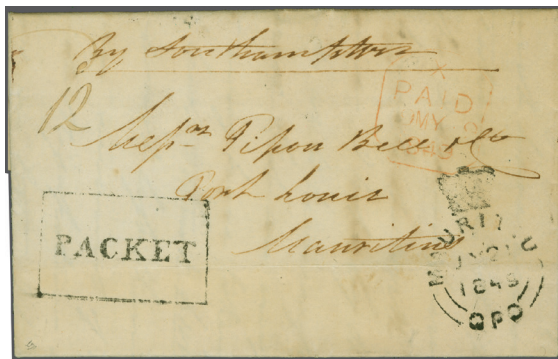 By Southampton
12
X
PAID
MY
1849
Messrs Pipon Bell & Co
Port Louis
Mauritius
PACKET
MAURIT
1849
GPO